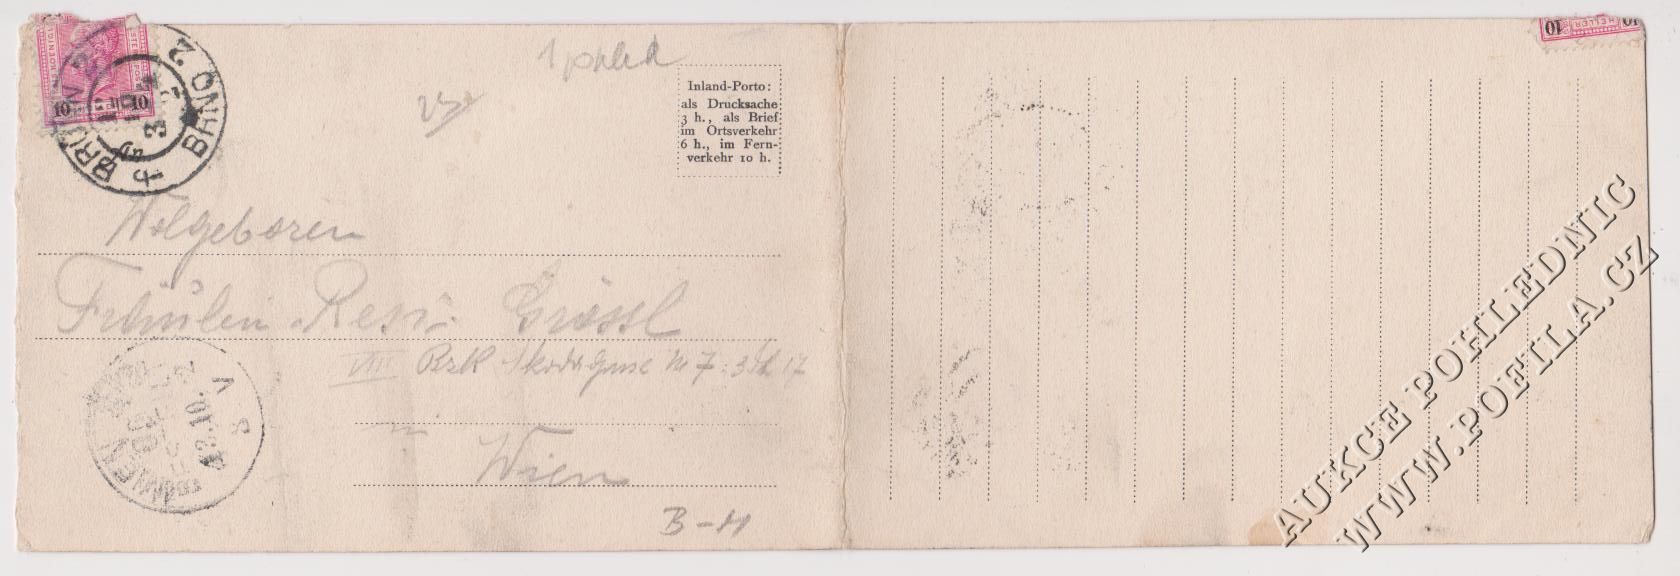 1 pohled
Inland-Porto:
als Drucksache
3 h., als Brief
im Ortsverkehr
6 h., im Fern-
verkehr 10 h.
10 10
BRÜNN 2 BRNO 2
HELLER 10
10
Wolgeboren
Fräulein Resi Grössl
VIII Bzk Skodagasse No 7. 3. Th 17
in Wien
B-H
AUKCE POHLEDNIC
WWW.POFILA.CZ